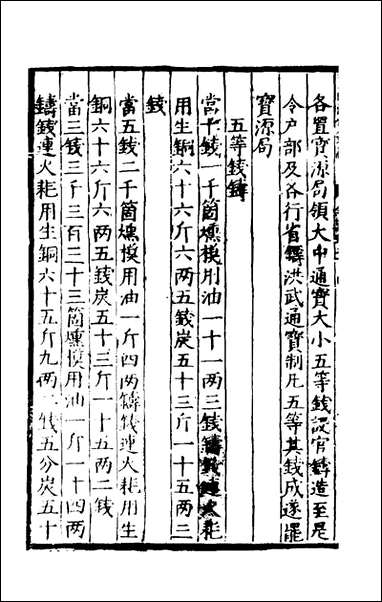 各置寳源局頒大中通寳大小五等錢設官鑄造至是
令户部及各行省鑄洪武通寳制凡五等其錢成遂罷
寳源局
五等錢鑄
當十錢一千箇燻模用油一十一兩三錢鑄錢連火耗
用生銅六十六斤六兩五錢炭五十三斤一十五兩三
錢
當五錢二千箇燻模用油一斤四兩鑄錢連火耗用生
銅六十六斤六兩五錢炭五十三斤一十五兩二錢
當三錢三千三百二十三箇燻模用油一斤一十四兩
鑄錢連火耗用生銅六十五斤九兩二錢五分炭五十